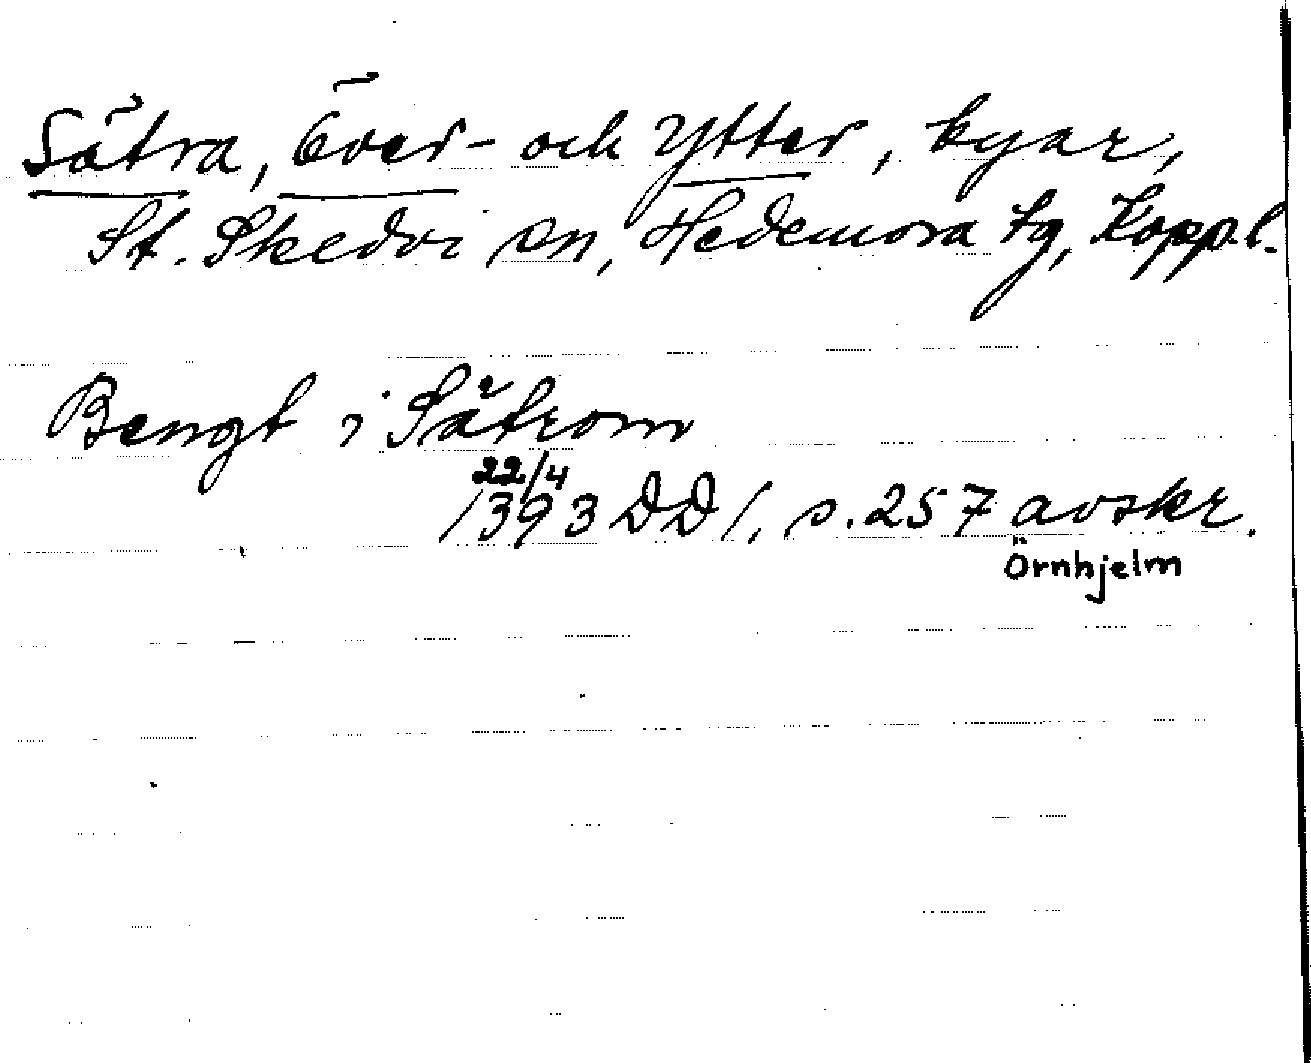 Sätra, Över- och Ytter, byar,
St. Skedvi sn, Hedemora tg, Kopp.l.
Bengt i Sätrom
22/4
1393 DD 1, s. 257 avskr.
Örnhjelm